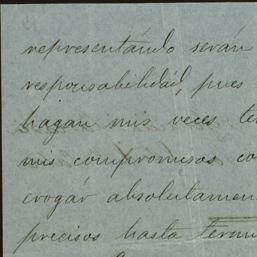 representándo serán
responsabilidád, pues
hagan mis veces te
mis compromisos co
erogár absolutamen
precisos hasta termi